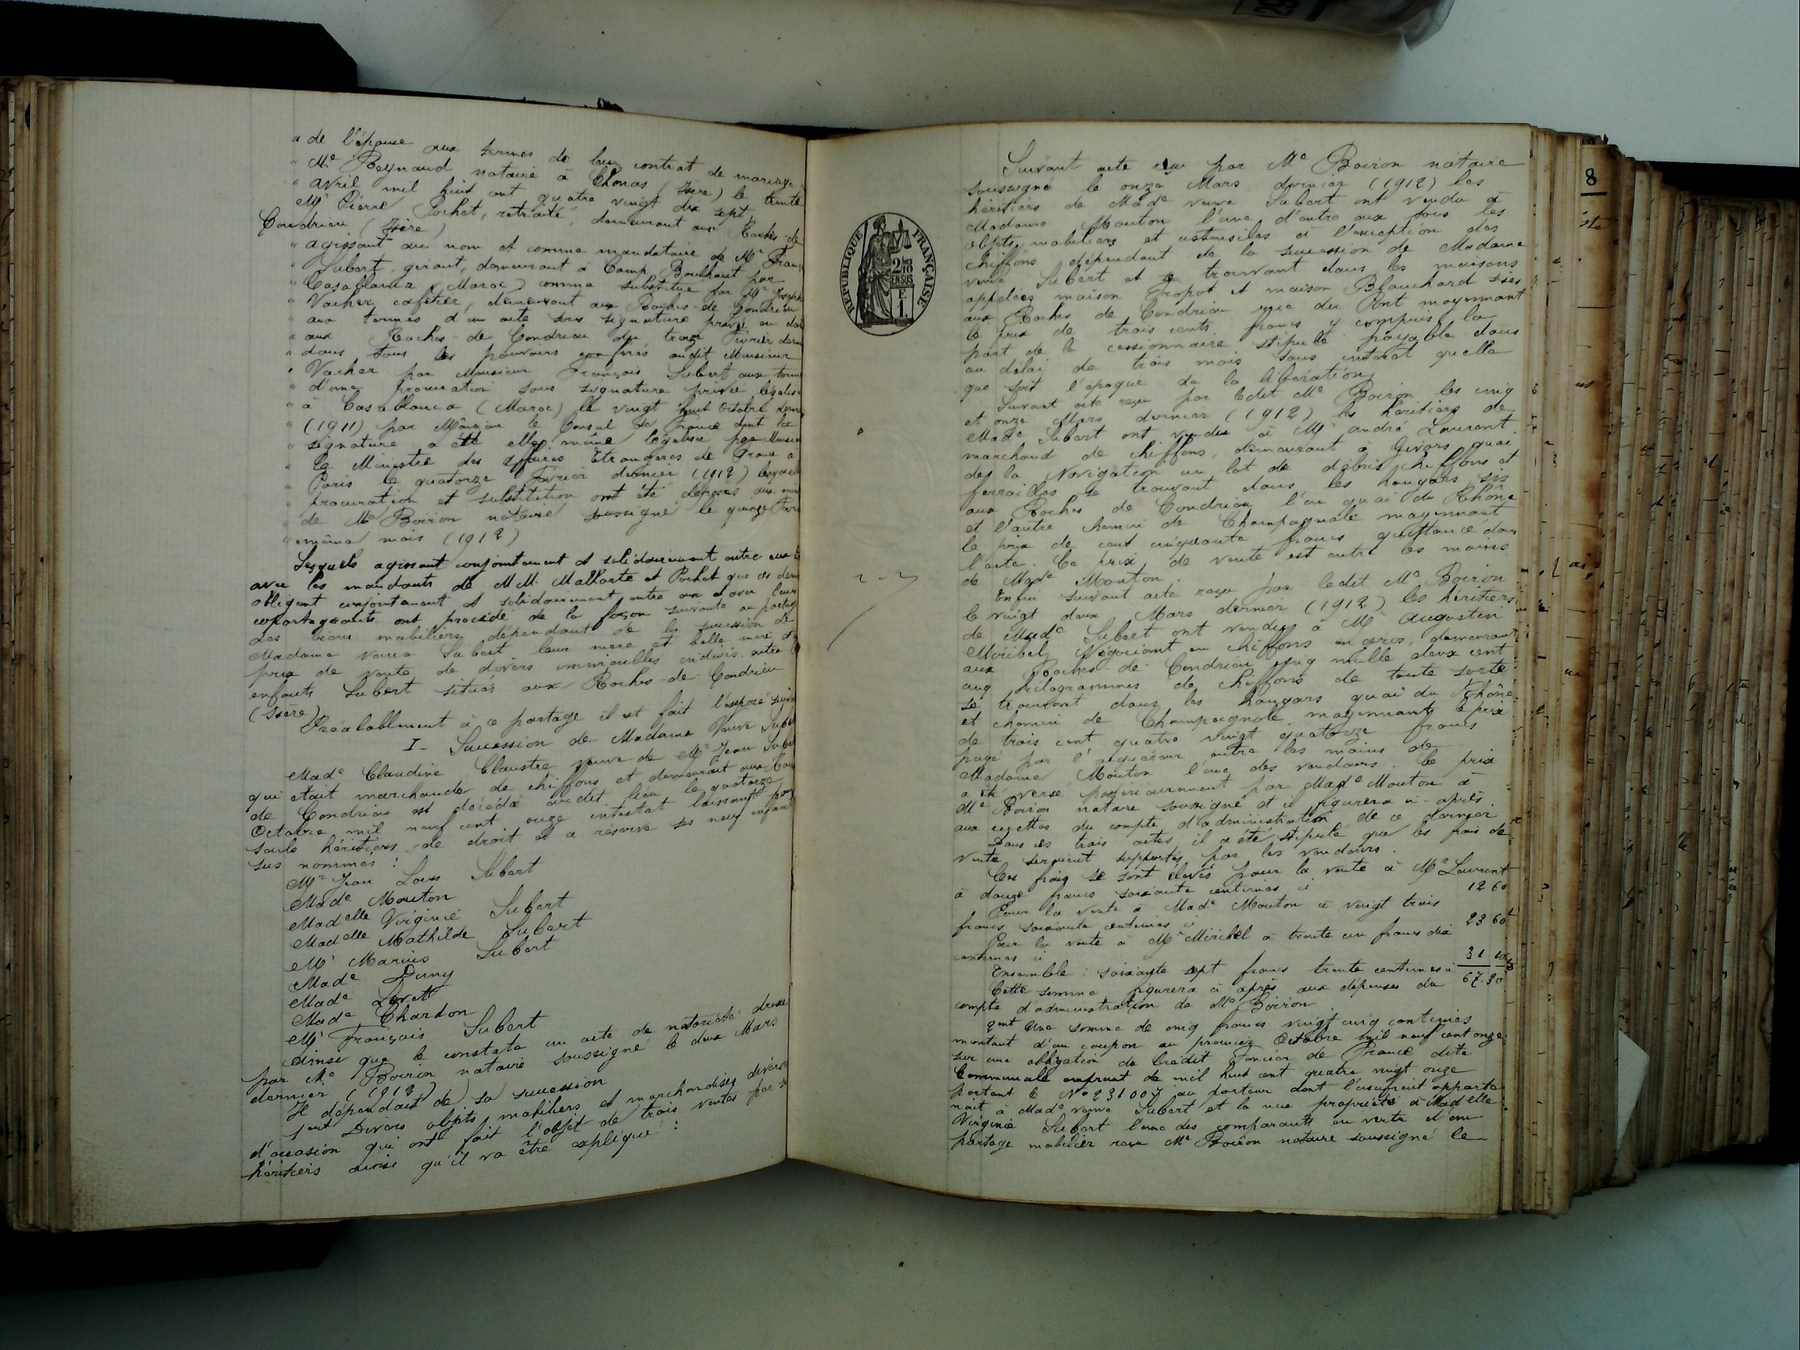 " de l'épouse aux termes de leur contrat de mariage
" Me Reynaud notaire à Chonas (Isère) le trente
" avril mil huit cent quatre vingt dix sept
" Mr Pierre Pochet, retraité, demeurant aux Roches-de
Condrieu (Isère)
" agissant au nom et comme mandataire de Mr Fran
" Jubert, gérant, demeurant à Camp Boulhaut par
" Casablanca (Maroc) comme substitué par Mr Joseph
" Vacher cafetier, demeurant aux Roches-de-Condrieu
" aux termes d'un acte sous signature privée en da
" aux Roches-de-Condrieu du treize Février dern
" dans tous les pouvoirs conférés audit Monsieur
" Vacher par Monsieur François Jubert aux term
" d'une procuration sous signature privée légalis
" à Casablanca (Maroc) le vingt huit Octobre dern
" (1911) par Monsieur le Consul de France dont la
" signature a été elle même légalisée par Monsieu
" le Ministre des Affaires Etrangères de France à
" Paris le quatorze Février dernier (1912) lesquel
" procuration et substitution ont été déposées aux min
" de Me Boiron notaire soussigné le quinze Fév
" même mois (1912)
Lesquels agissant conjointement et solidairement entre eux
avec les mandants de MM. Mallarte et Pochet que ces der
obligent conjointement et solidairement entre eux et avec leurs
copartageants ont procédé de la façon suivante au partage
des biens mobiliers dépendant de la succession de
Madame veuve Jubert leur mère et belle mère et
prix de vente de divers immeubles indivis entre
enfants Jubert situés aux Roches-de-Condrieu
(Isère)
Préalablement à ce partage il est fait l'exposé
I - Succession de Madame Veuve Jube
Made Claudine Claustre veuve de Mr Jean Jube
qui était marchande de chiffons et demeurait aux Ro
de Condrieu est décédée audit lieu le quatorze
Octobre mil neuf cent onze intestat laissant pou
seuls héritiers de droit et à réserve ses neuf enfan
sus nommés :
Mr Jean Louis Jubert
Made Mouton
Madelle Virginie Jubert
Madelle Mathilde Jubert
Mr Marius Jubert
Made Duny
Made
Made Chardon
Mr François Jubert
Ainsi que le constate un acte de notoriété dressé
par Me Boiron notaire soussigné le deux Mars
dernier (1912)
Il dépendait de sa succession
1ent Divers objets mobiliers et marchandises divers
d'occasion qui ont fait l'objet de trois ventes par
héritiers ainsi qu'il va être expliqué :
Suivant acte reçu par Me Boiron notaire
soussigné le onze Mars dernier (1912) les
héritiers de Made veuve Jubert ont vendu à
Madame Mouton l'une d'entre eux tous les
objets mobiliers et ustensiles à l'exception des
chiffons dépendant de la succession de Madame
veuve Jubert et se trouvant dans les maisons
appelées maison et maison Blanchard sises
aux Roches de Condrieu rue du Pont moyennant
le prix de trois cents francs y compris la
part de la cessionnaire stipulé payable dans
un délai de trois mois sans intérêt quelle
que soit l'époque de la libération
Suivant acte reçu par ledit Me Boiron les cinq
et onze Mars dernier (1912) les héritiers de
Made Jubert ont vendu à Mr André Laurent
marchand de chiffons, demeurant à Givors, quai
de la Navigation un lot de débris chiffons et
ferrailles se trouvant dans les hangars sis
aux Roches de Condrieu l'un quai du Rhône
et l'autre chemin de Champagnole moyennant
le prix de cent cinquante francs quittancé dans
l'acte. Ce prix de vente est entre les mains
de Made Mouton.
Enfin suivant acte reçu par ledit Me Boiron
le vingt deux Mars dernier (1912) les héritiers
de Made Jubert ont vendu à Mr Augustin
Miribel, Négociant en chiffons en gros, demeurant
aux Roches-de-Condrieu cinq mille deux cent
cinq kilogrammes de chiffons de toute sorte
se trouvant dans les hangars quai du Rhône
et chemin de Champagnole moyennant le prix
de trois cent quatre vingt quatorze francs
payé par l'acquéreur entre les mains de
Madame Mouton l'une des vendeurs. Ce prix
a été versé postérieurement par Made Mouton à
Me Boiron notaire soussigné et il figurera ci-après
aux recettes du compte d'administration de ce dernier.
Dans ces trois actes il a été stipulé que les frais de
vente seraient supportés par les vendeurs.
Ces frais se sont élevés pour la vente à Mr Laurent
à douze francs soixante centimes ci 12 60
Pour la vente à Made Mouton à vingt trois
francs soixante centimes ci 23 60
Pour la vente à Mr Miribel à trente un francs dix
centimes ci 31 10
Ensemble : soixante sept francs trente centimes ci 67.30
Cette somme figurera ci après aux dépenses du
compte d'administration de Me Boiron
2ent Une somme de cinq francs vingt cinq centimes
montant d'un coupon au premier Octobre mil neuf cent onze
sur une obligation du Crédit Foncier de France dite
Communale emprunt de mil huit cent quatre vingt onze
portant le No 231007 au porteur dont l'usufruit apparte
nait à Made veuve Jubert et la nue propriété à Madelle
Virginie Jubert l'une des comparants en vertu d'un
partage mobilier reçu Me Boiron notaire soussigné le
RÉPUBLIQUE FRANÇAISE
2/10 EN SUS
1 F.
8